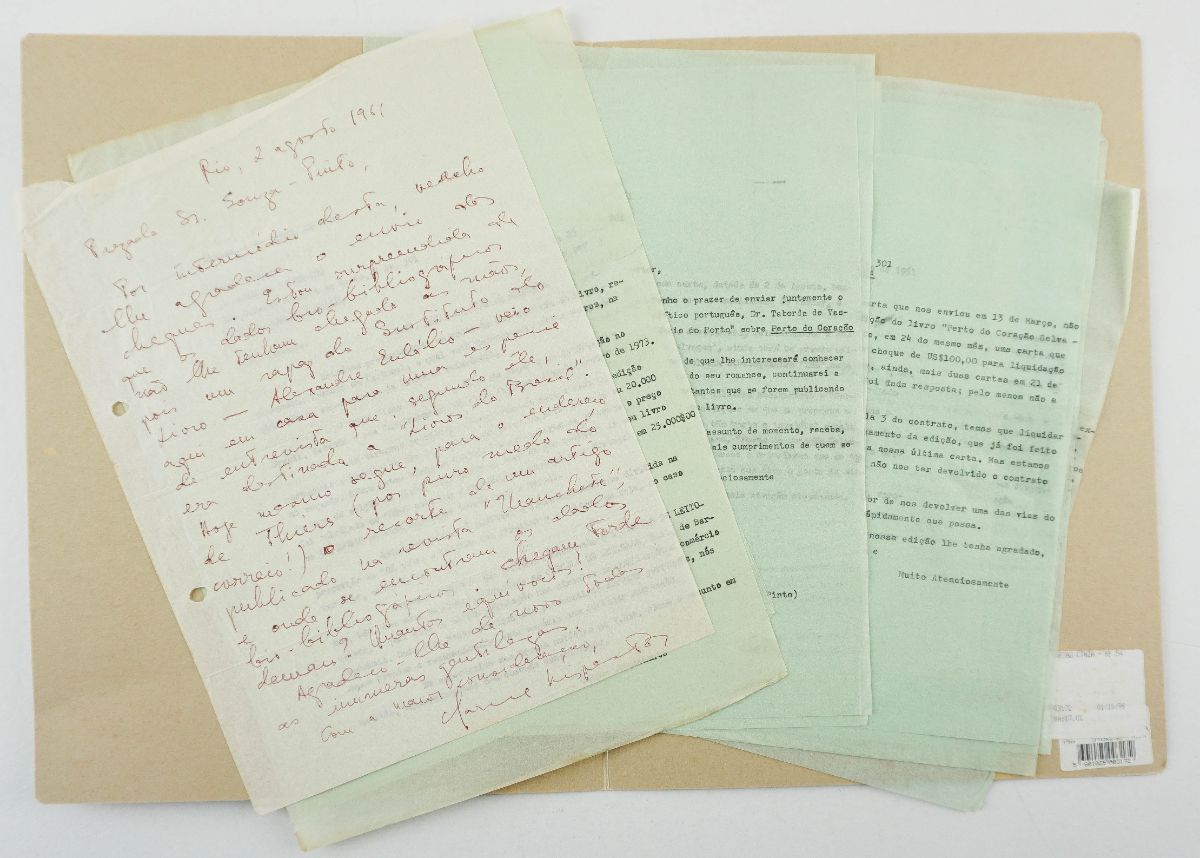 Rio, 2 agosto 1961
Prezado Sr. Souza-Pinto,
Por intermédio desta, venho
lhe agradecer o envio dos
cheques. Estou surpreendida de
que os dados bio-bibliográficos
não lhe tenham chegado às mãos,
pois um rapaz do Instituto do
Livro — Alexandre Eulálio — veio
aqui em casa para uma espécie
de entrevista que, segundo êle,
era destinada a "Livros do Brasil".
Hoje mesmo segue, para o endereço
de Thiers (por puro medo do
correio!) o recorte de um artigo
publicado na revista "Manchete",
e onde se encontram os dados
bio-bibliográficos. Chegam tarde
demais? Quantos equívocos!
Agradeço-lhe de novo todas
as inúmeras gentilezas.
Com a maior consideração,
Clarice Lispector
ivro, re-
ção no
o de 1973.
edição
u 20.000
o preço
eu livro
em 25.000$00
ida na
o caso
LEITO-
de Bar-
omércio
o, nós
unto em
nho o prazer de enviar juntamente o
ítico português, Dr. Taborda de Vas-
do Porto" sobre Perto do Coração
de que lhe interessará conhecer
do seu romance, continuarei a
tantos que se forem publicando
livro.
assunto de momento, receba,
ais cumprimentos de quem se
nciosamente
Pinto)
301
arta que nos enviou em 13 de Março, não
ção do livro "Perto do Coração Selva-
, em 24 do mesmo mês, uma carta que
cheque de US$100,00 para liquidação
, ainda, mais duas cartas em 21 de
foi dada resposta; pelo menos não a
la 3 do contrato, temos que liquidar
amento da edição, que já foi feito
a nossa última carta. Mas estamos
não nos ter devolvido o contrato
or de nos devolver uma das vias do
àpidamente que possa.
nossa edição lhe tenha agradado,
e
Muito Atenciosamente